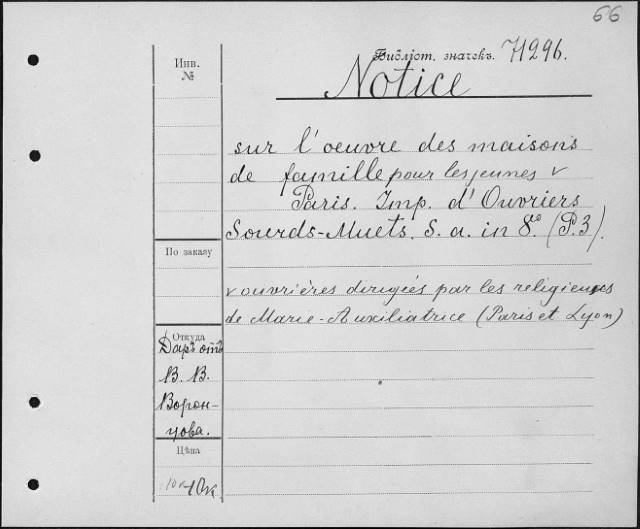 66
Инв.
№
Библіот. значекъ. 71296.
Notice
sur l'oeuvre des maisons
de famille pour les jeunes v
Paris. Imp. d'Ouvriers
Sourds-Muets. S. a. in 8.° (P.3).
По заказу
v ouvrières dirigiés par les religieuses
de Marie-Auxiliatrice (Paris et Lyon)
Откуда
Даръ отъ
В. В.
Ворон-
цова.
Цѣна
10 к